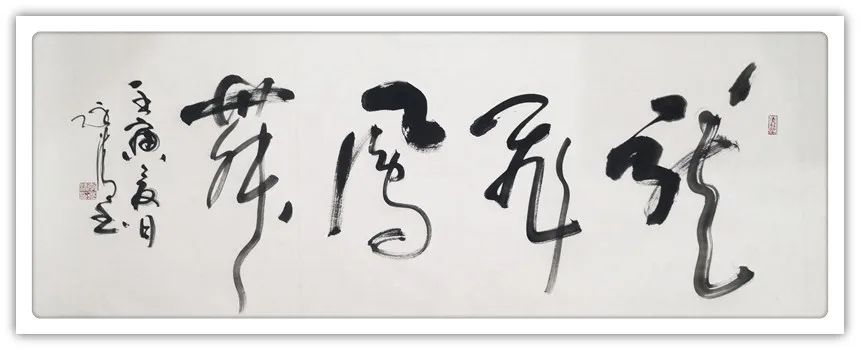 龍飛鳳舞
壬寅夏日